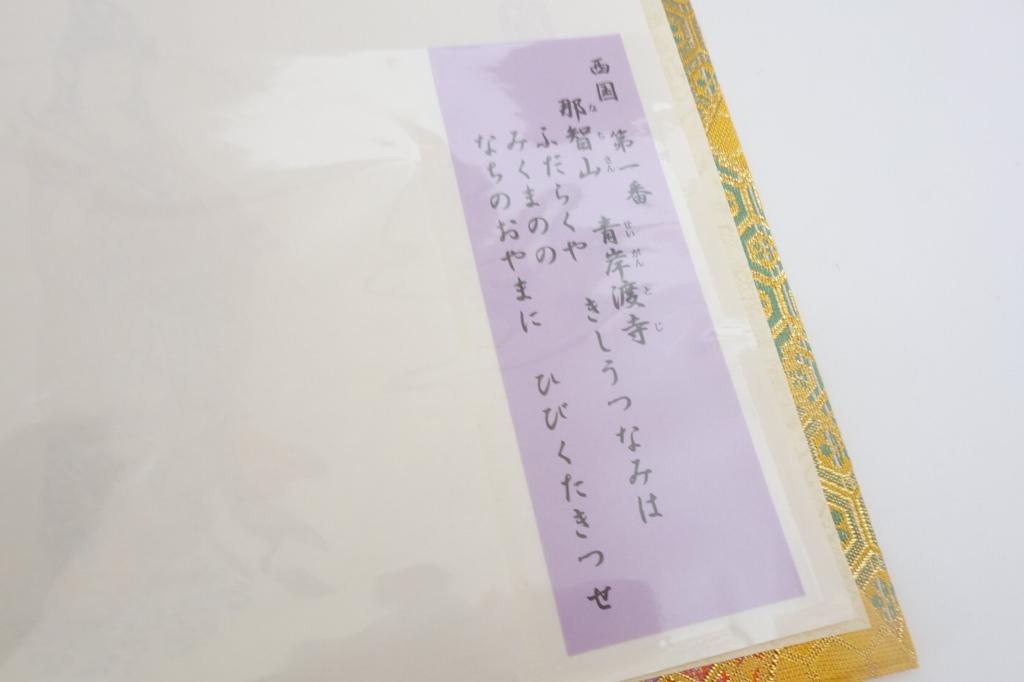 西国 第一番
なちさん せいがんとじ
那智山 青岸渡寺
ふだらくや きしうつなみは
みくまのの
なちのおやまに ひびくたきつせ